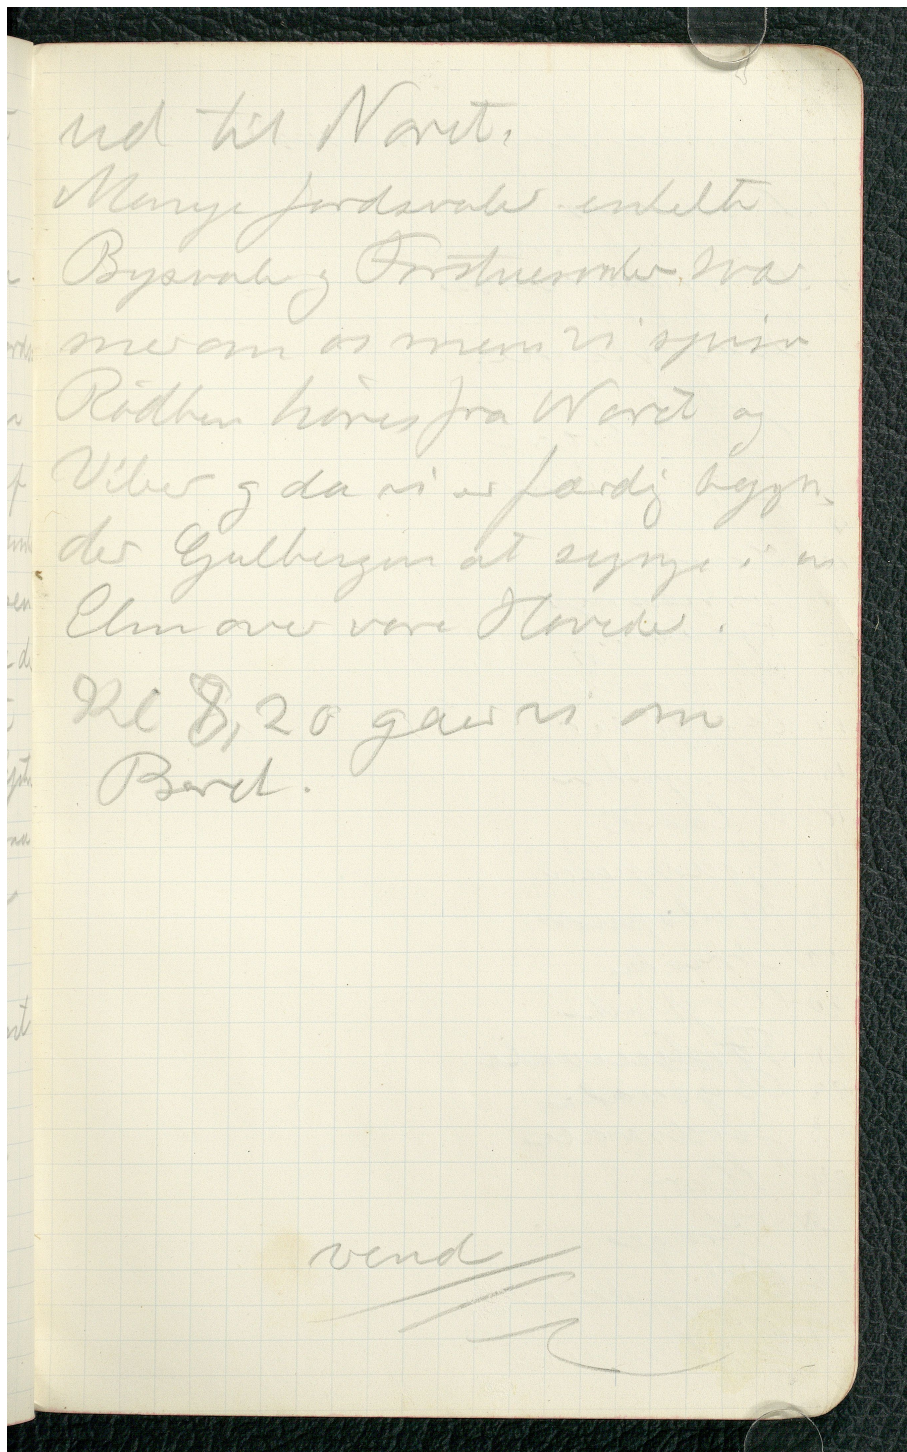 ud til Noret.
Mange Jordsvaler enkelte
Bysvaler og Forstuesvaler svær
mer om os mens vi spiser
Rødben høres fra Noret og
Viber og da vi er færdig begyn-
der Gulbergen at synge i en
Elm over vore Hoveder.
Kl 8,20 gaar vi om
Bord.
vend